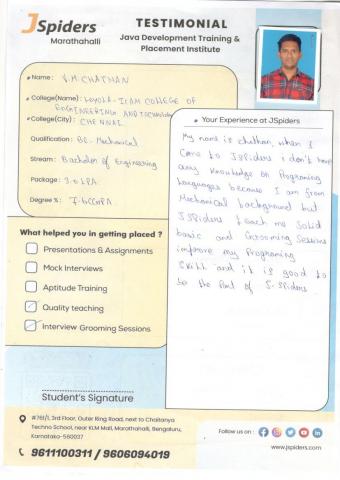 JSpiders
Marathahalli
TESTIMONIAL
Java Development Training &
Placement Institute
Name : V.M. CHATHAN
College(Name) : LOYOLA-ICAM COLLEGE OF
ENGINEERING AND TECHNOLOGY
College(City) : CHENNAI
Qualification : BE-Mechanical
Stream : Bachelor of Engineering
Package : 3.0 LPA
Degree % : 7.6 CGPA
Your Experience at JSpiders
My name is chathan, when I
Come to JSpiders I don't have
any knowledge on Programing
languages because I am from
Mechanical background but
JSPiders teach me Solid
basic and Grooming Sessions
improve my Programing
Skill and it is good to
be the Part of J-Spiders
What helped you in getting placed ?
Presentations & Assignments
Mock Interviews
Aptitude Training
Quality teaching
Interview Grooming Sessions
Student's Signature
#761/1, 3rd Floor, Outer Ring Road, next to Chaitanya
Techno School, near KLM Mall, Marathahalli, Bengaluru,
Karnataka-560037
9611100311 / 9606094019
Follow us on :
www.jspiders.com